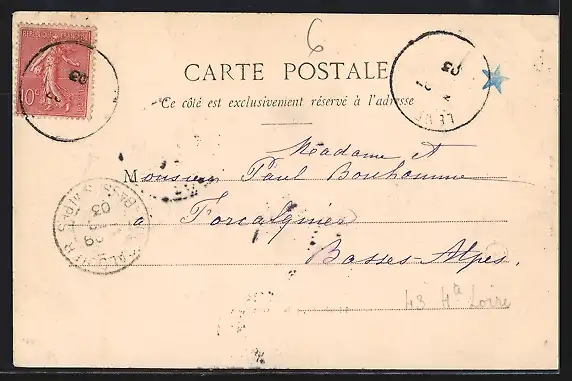 REPUBLIQUE FRANÇAISE
10c
03
6
03
21
LE
CARTE POSTALE
Ce côté est exclusivement réservé à l'adresse
Madame et
Monsieur Paul Bonhomme
à Forcalquier
Basses-Alpes.
03
09
43 Hte Loire